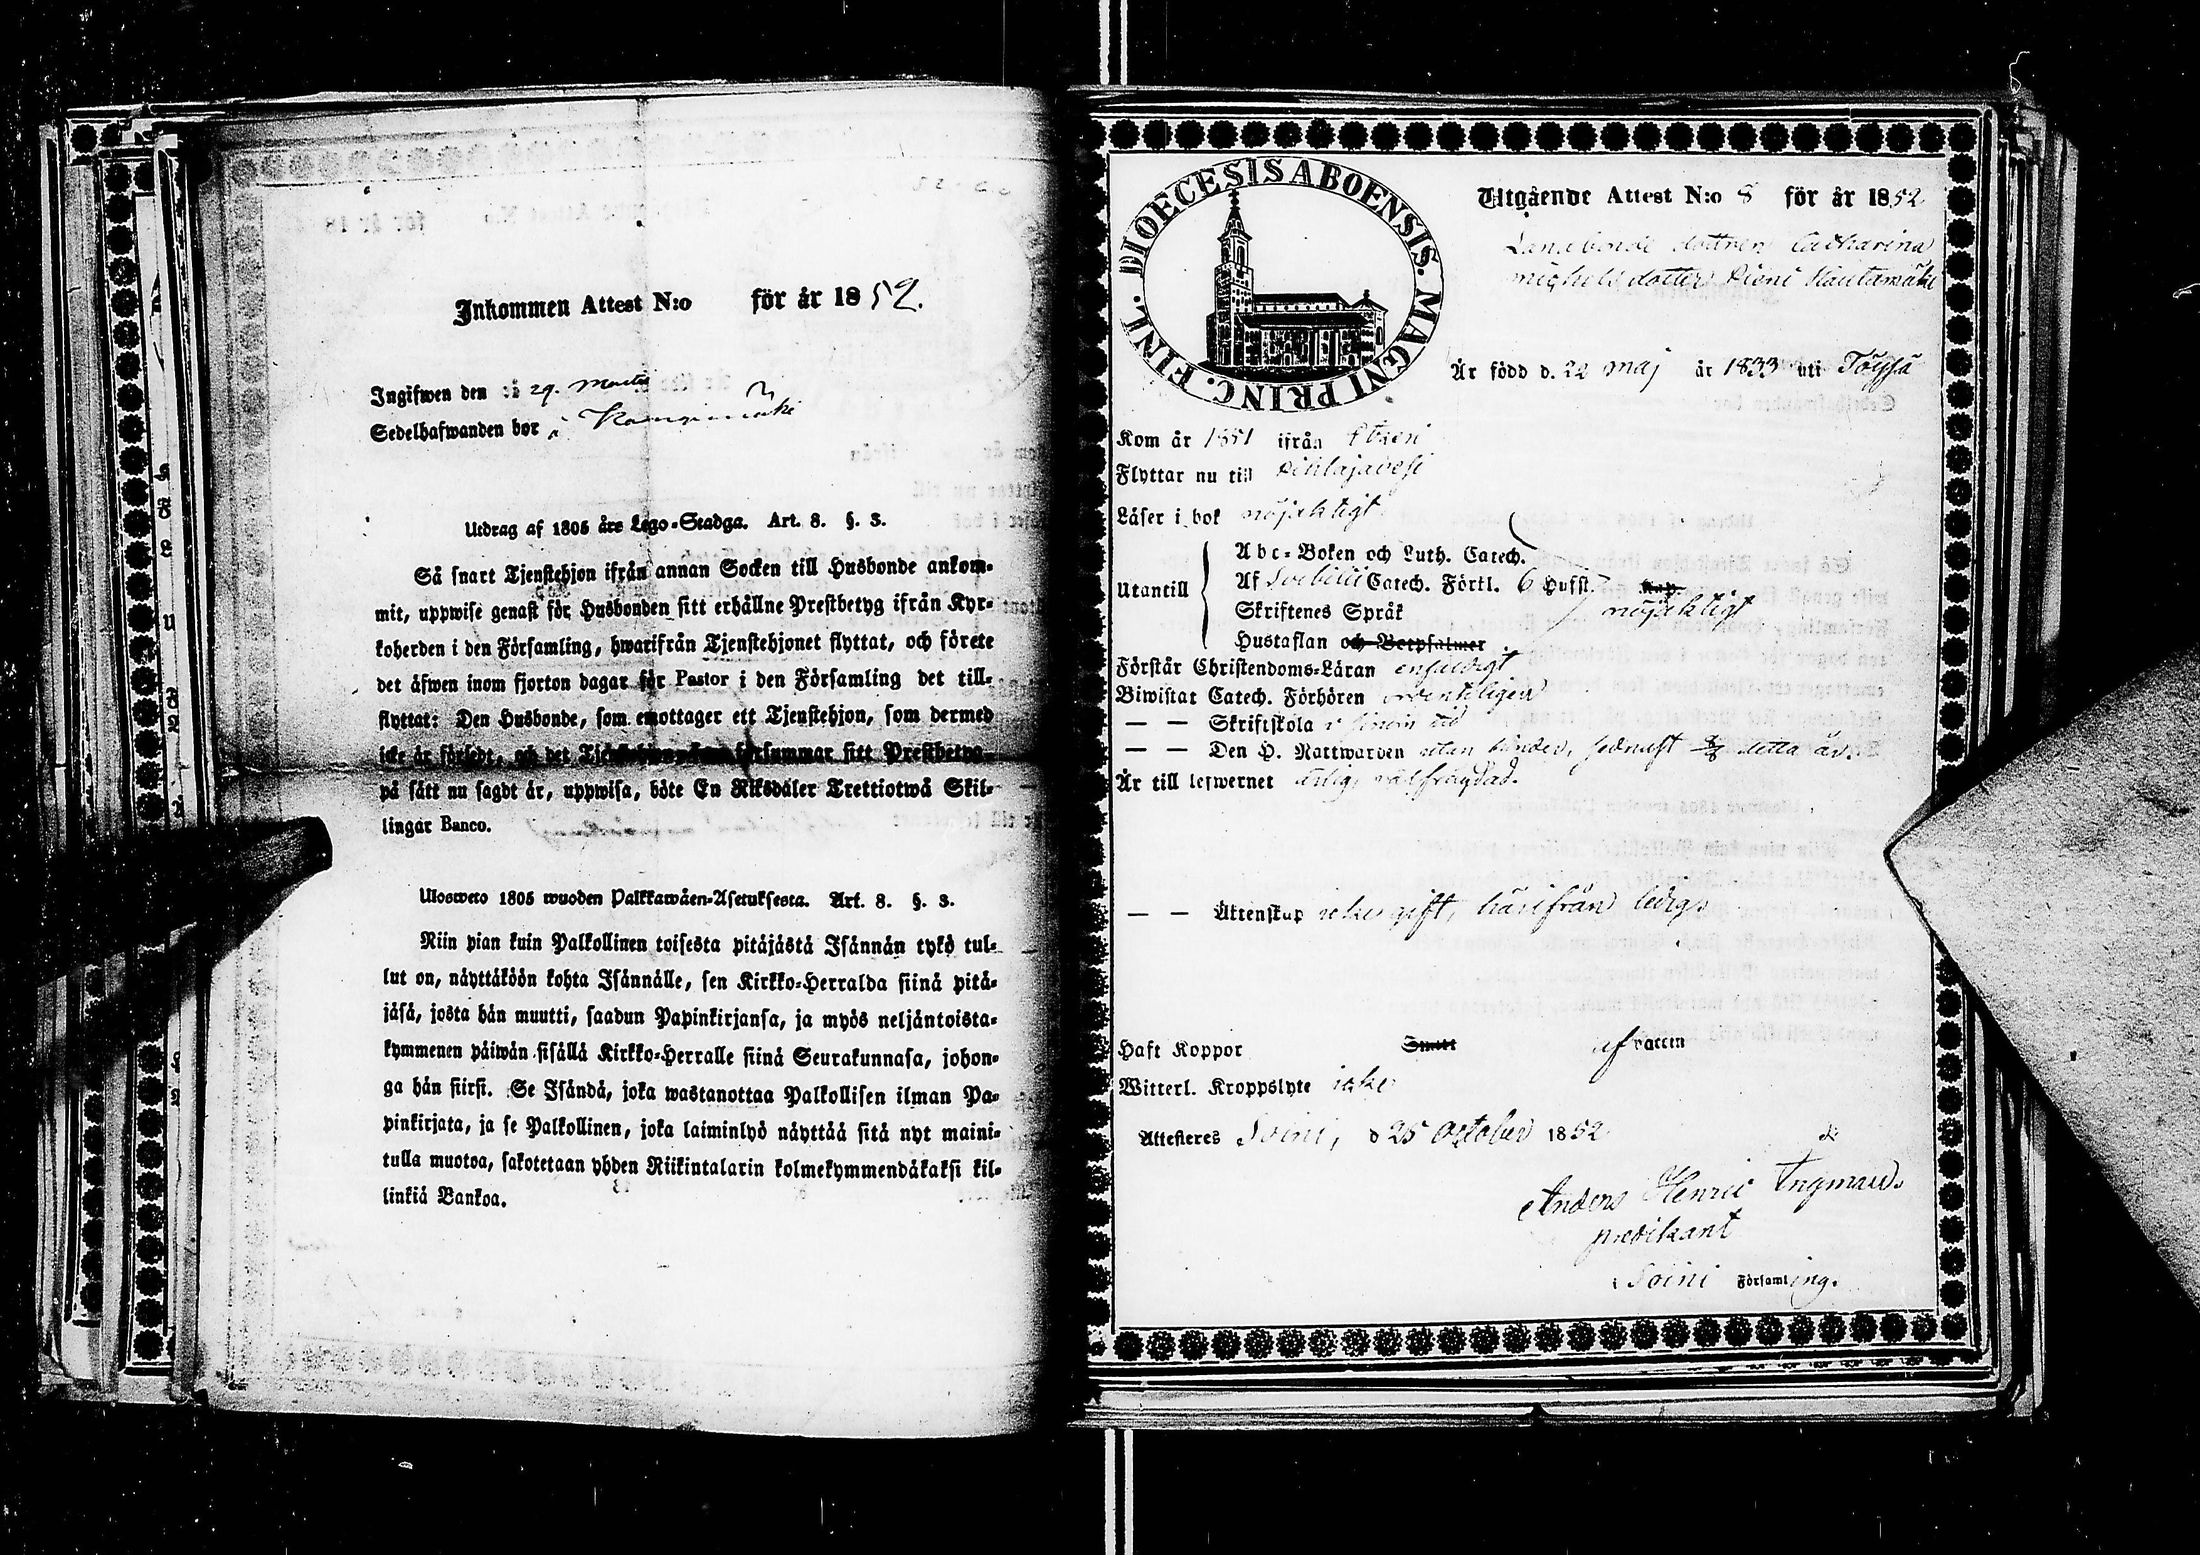 Inkommen Attest N:o för år 1852.
Ingifwen den 29. Martii
Sedelhafwanden bor i
Utdrag af 1805 års Lego-Stadga. Art. 8. §. 3.
Så snart Tjenstehjon ifrån annan Socken till Husbonde ankom-
mit, uppwise genast för Husbonden sitt erhållne Prestbetyg ifrån Kyr-
koherden i den Församling, hwarifrån Tjenstehjonet flyttat, och förete
det äfwen inom fjorton dagar för Pastor i den Församling det till-
flyttat: Den Husbonde, som emottager ett Tjenstehjon, som dermed
icke är försedt, och det försummar sitt Prestbetyg
på sätt nu sagdt är, uppwisa, böte En Riksdaler Trettiotwå Skil-
lingar Banco.
Ulosweto 1805 wuoden Palkkawäen-Asetuksesta. Art. 8. §. 3.
Niin pian kuin Palkollinen toisesta pitäjästä Isännän tykö tul-
lut on, näyttäköön kohta Isännälle, sen Kirkko-Herralda siinä pitä-
jäsä, josta hän muutti, saadun Papinkirjansa, ja myös neljäntoista-
kymmenen päiwän sisällä Kirkko-Herralle siinä Seurakunnasa, johon-
ga hän siirsi. Se Isändä, joka wastanottaa Palkollisen ilman Pa-
pinkirjata, ja se Palkollinen, joka laiminlyö näyttää sitä nyt maini-
tulla muotoa, sakotetaan yhden Riikintalarin kolmekymmendäkaksi kil-
linkiä Bankoa.
DIOECESIS ABOENSIS. MAGNI PRINC. FINL.
Utgående Attest N:o 8 för år 1852
Landbonde dottren Catharina
Michelsdotter Pieni Rautamäki
Är född d. 22 Maj år 1833 uti Töysä
Kom år 1851 ifrån Etseri
Flyttar nu till Pihlajavesi
Läser i bok nöjaktigt
Utantill
Abc-Boken och Luth. Catech.
Af Svebilii Catech. Förkl. 6 Hufst. Kap.
Skriftenes Språk nöjaktigt
Hustaflan och Botpsalmer
Förstår Christendoms-Läran enfaldigt
Biwistat Catech. Förhören ordentligen
— — Skriftskola i sinom tid
— — Den H. Nattwarden utan hinder, sednast detta år.
Är till lefwernet ärlig, välfrägdad.
— — Äktenskap icke gift, härifrån ledig.
Haft Koppor Smått af vaccin
Witterl. Kroppslyte icke
Attesteres Soini, d 25 October 1852
Anders Henric Ingman.
predikant
i Soini Församling.